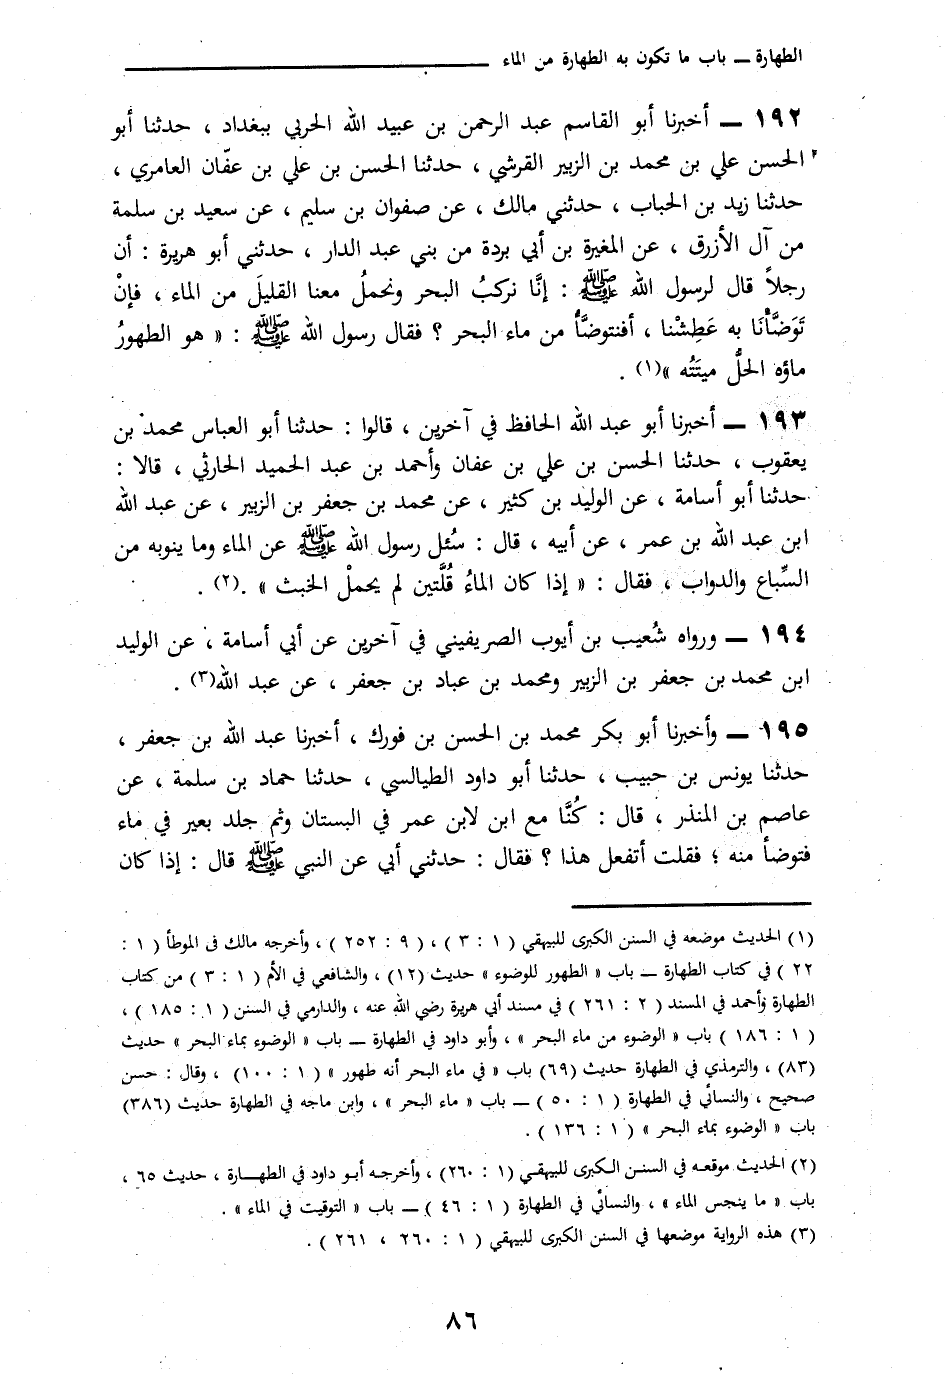 الطهارة ــ باب ما تكون به الطهارة من الماء
١٩٢ ــ أخبرنا أبو القاسم عبد الرحمن بن عبيد الله الحربي ببغداد ، حدثنا أبو
الحسن علي بن محمد بن الزبير القرشي ، حدثنا الحسن بن علي بن عفّان العامري ،
حدثنا زيد بن الحباب ، حدثني مالك ، عن صفوان بن سليم ، عن سعيد بن سلمة
من آل الأزرق ، عن المغيرة بن أبي بردة من بني عبد الدار ، حدثني أبو هريرة : أن
رجلاً قال لرسول الله ﷺ : إنَّا نركبُ البحر ونحملُ معنا القليلَ من الماء ، فإنْ
تَوَضَّأْنَا به عَطِشْنا ، أفنتوضَّأُ من ماء البحر ؟ فقال رسول الله ﷺ : « هو الطهورُ
ماؤه الحلُّ ميتَتُه »(١) .
١٩٣ ــ أخبرنا أبو عبد الله الحافظ في آخرين ، قالوا : حدثنا أبو العباس محمد بن
يعقوب ، حدثنا الحسن بن علي بن عفان وأحمد بن عبد الحميد الحارثي ، قالا :
حدثنا أبو أسامة ، عن الوليد بن كثير ، عن محمد بن جعفر بن الزبير ، عن عبد الله
ابن عبد الله بن عمر ، عن أبيه ، قال : سُئل رسول الله ﷺ عن الماء وما ينوبه من
السِّباع والدواب ، فقال : « إذا كان الماءُ قُلَّتين لم يحملْ الخبث » .(٢) .
١٩٤ ــ ورواه شُعيب بن أيوب الصريفيني في آخرين عن أبي أسامة ، عن الوليد
ابن محمد بن جعفر بن الزبير ومحمد بن عباد بن جعفر ، عن عبد الله(٣) .
١٩٥ ــ وأخبرنا أبو بكر محمد بن الحسن بن فورك ، أخبرنا عبد الله بن جعفر ،
حدثنا يونس بن حبيب ، حدثنا أبو داود الطيالسي ، حدثنا حماد بن سلمة ، عن
عاصم بن المنذر ، قال : كُنَّا مع ابن لابن عمر في البستان وثم جلد بعير في ماء
فتوضأ منه ؛ فقلت أتفعل هذا ؟ فقال : حدثني أبي عن النبي ﷺ قال : إذا كان
(١) الحديث موضعه في السنن الكبرى للبيهقي ( ١ : ٣ ) ، ( ٩ : ٢٥٢ ) ، وأخرجه مالك فى الموطأ ( ١ :
٢٢ ) في كتاب الطهارة ــ باب « الطهور للوضوء » حديث (١٢) ، والشافعي في الأم ( ١ : ٣ ) من كتاب
الطهارة وأحمد في المسند ( ٢ : ٢٦١ ) في مسند أبي هريرة رضي الله عنه ، والدارمي في السنن ( ١ : ١٨٥ ) ،
( ١ : ١٨٦ ) باب « الوضوء من ماء البحر » ، وأبو داود في الطهارة ــ باب « الوضوء بماء البحر » حديث
(٨٣) ، والترمذي في الطهارة حديث (٦٩) باب « في ماء البحر أنه طهور » ( ١ : ١٠٠) ، وقال : حسن
صحيح ، والنسائي في الطهارة ( ١ : ٥٠ ) ــ باب « ماء البحر » ، وابن ماجه في الطهارة حديث (٣٨٦)
باب « الوضوء بماء البحر » ( ١ : ١٣٦ ) .
(٢) الحديث موقعه في السنن الكبرى للبيهقي (١ : ٢٦٠) ، وأخرجه أبو داود في الطهارة ، حديث ٦٥ ،
باب « ما ينجس الماء » ، والنسائي في الطهارة ( ١ : ٤٦ ) ــ باب « التوقيت في الماء » .
(٣) هذه الرواية موضعها في السنن الكبرى للبيهقي ( ١ : ٢٦٠ ، ٢٦١ ) .
٨٦